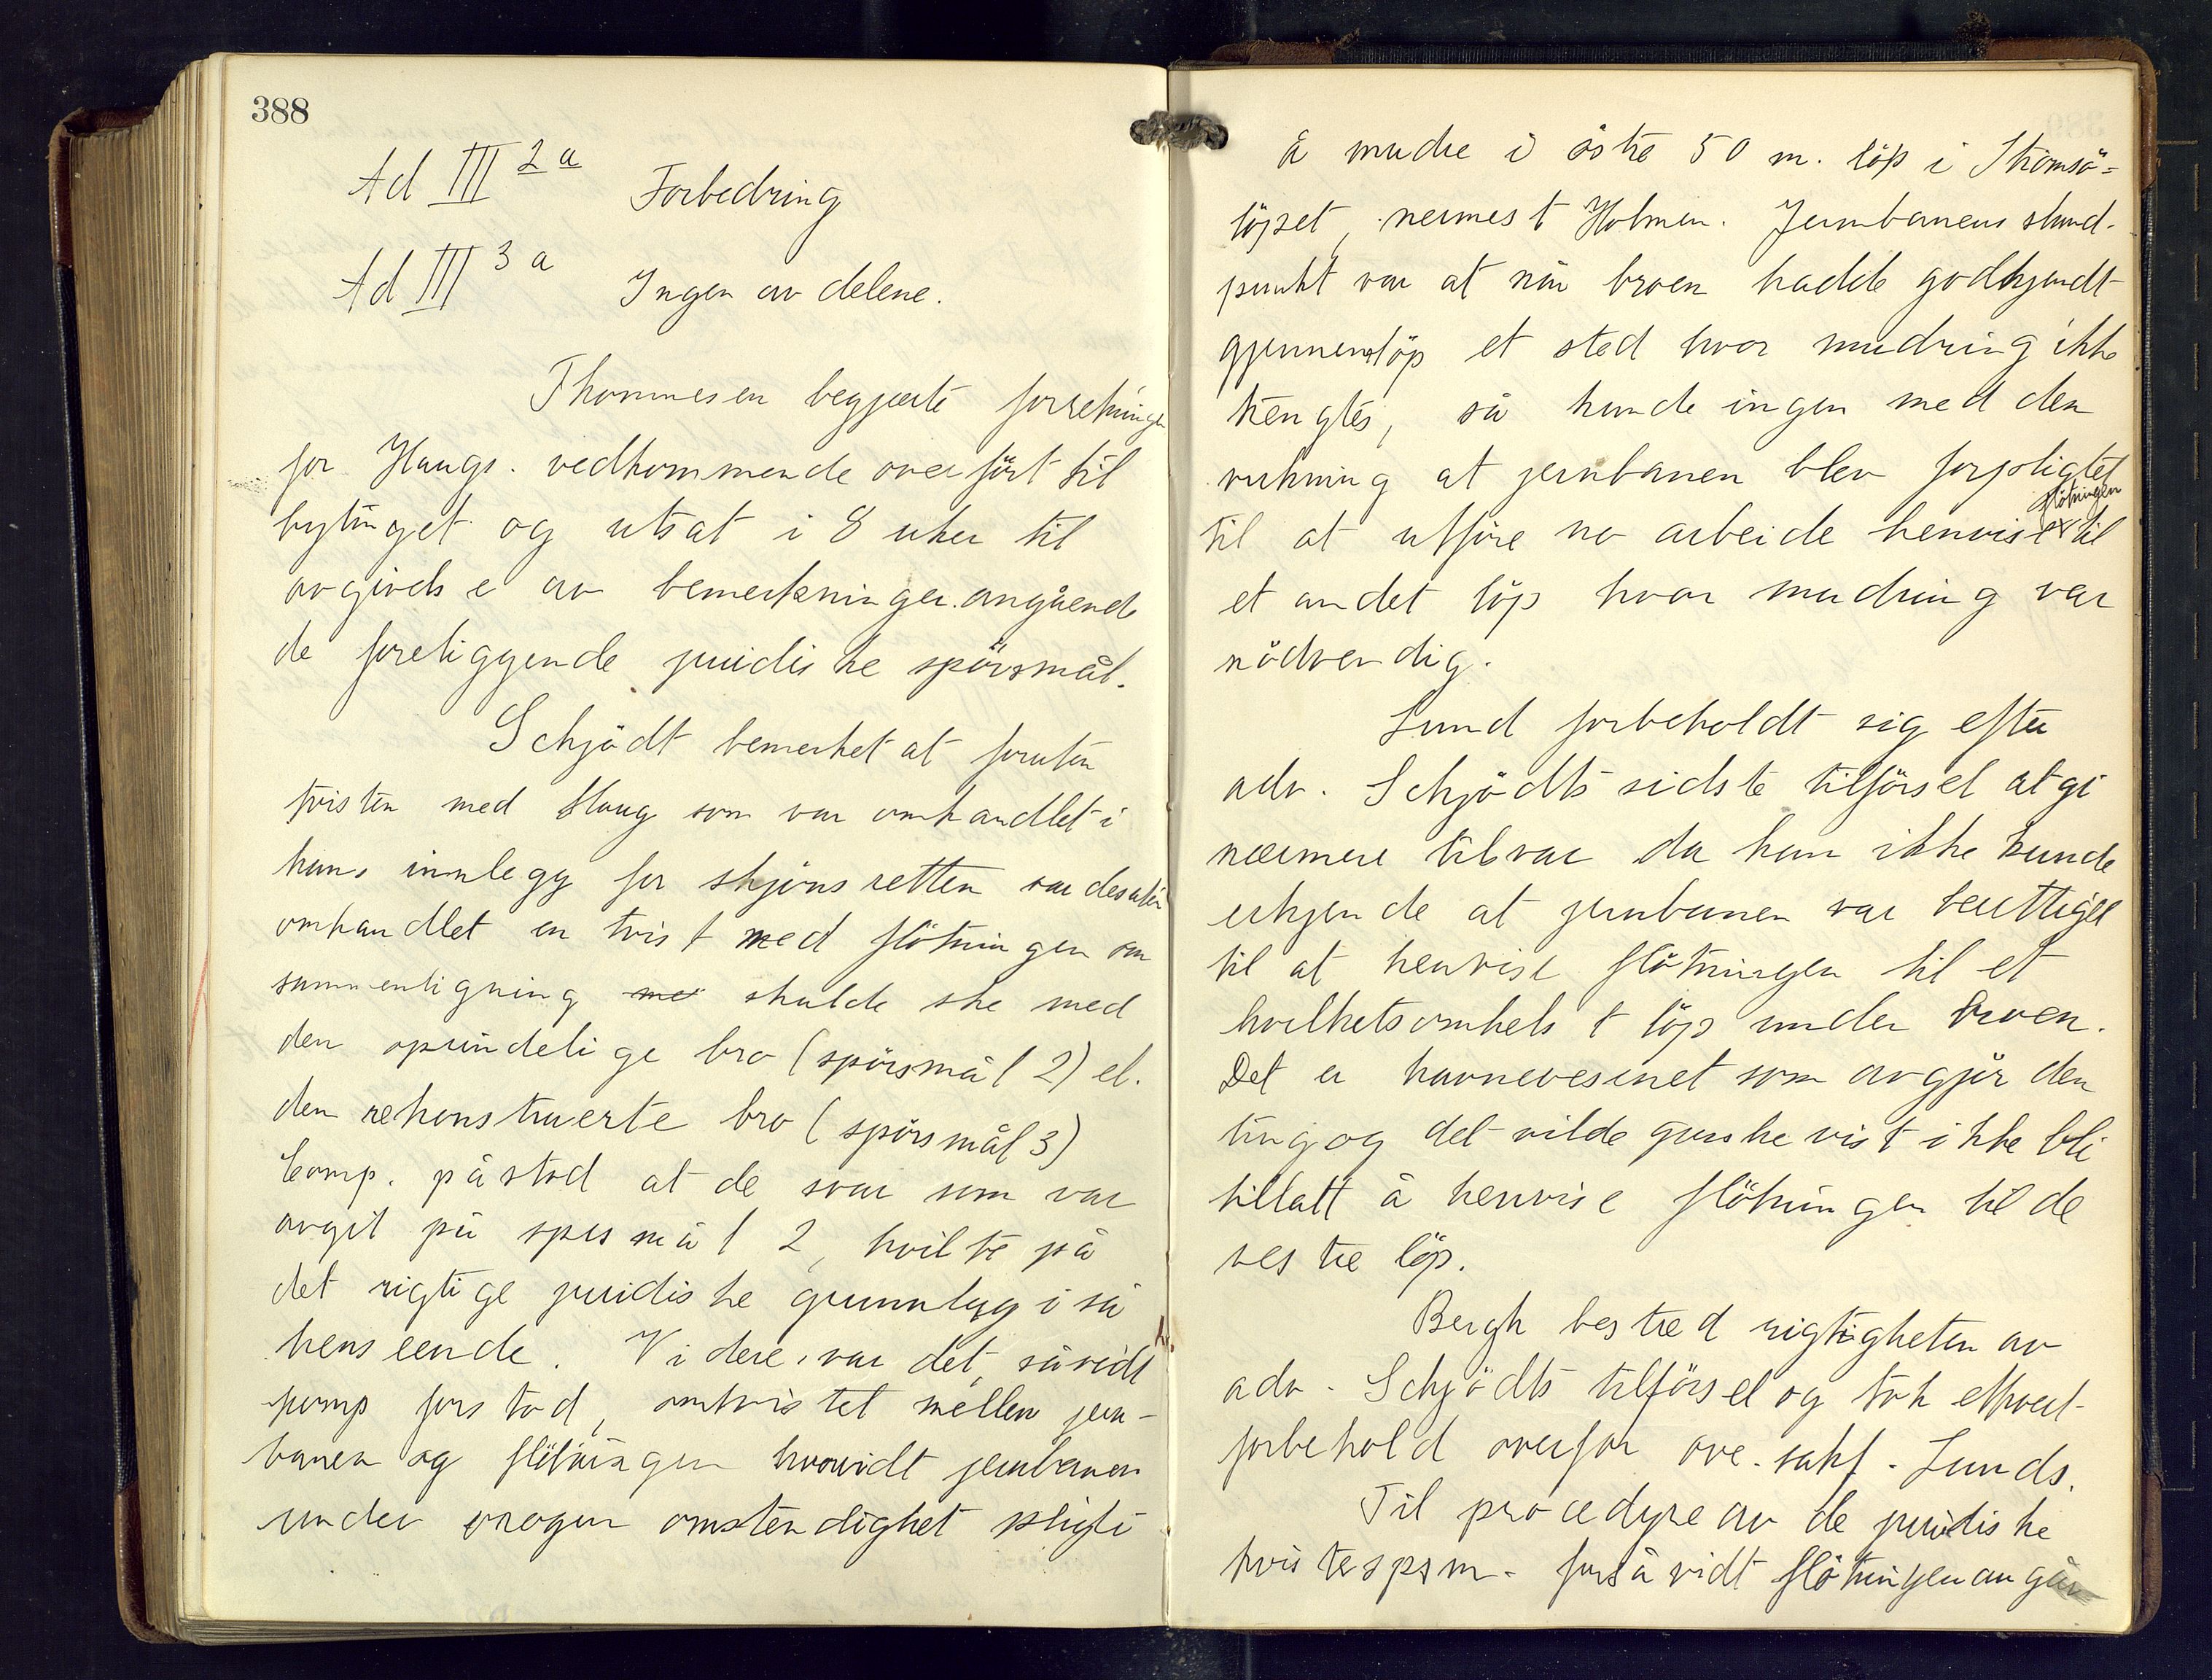 388
Ad III 2 a Forbedring
Ad III 3 a Ingen av delene.
Thommesen begjærte forretningen
for Haugs. vedkommende overført til
bytinget og utsat i 8 uker til
avgivelse av bemerkninger angående
de foreliggende juridiske spörsmål.
Schjödt bemerket at foruten
tvisten med Haug som var omhandlet i
hans innlegg for skjönsretten var desuten
omhandlet en tvist med flötningen om
sammenligning skulde ske med
den oprindelige bro (spörsmål 2) el.
den rekonstruerte bro (spörsmål 3)
Komp. påstod at de svar som var
avgit på spörsmål 2, hvilte på
det rigtige juridiske grunnlag i så
henseende. Videre var det, såvidt
komp forstod, omtvistet mellem jern-
banen og flötningen hvorvidt jernbanen
under nogen omstendighet pligti
å mudre i östre 50 m. löp i Strömsö=
löpet, nermest Holmen. Jernbanens stand-
punkt var at når broen hadde godkjendt
gjennemlöp et sted hvor mudring ikke
trengtes, så kunde ingen med den
virkning at jernbanen blev forpligtet
til at utföre no arbeide henvise flötningen til
et andet löp hvor mudring var
nödvendig.
Lund forbeholdt sig efter
adv. Schjödts sidste tilförsel at gi
nærmere tilsvar da han ikke kunde
erkjende at jernbanen var berettiget
til at henvise flötningen til et
hvilketsomhelst löp under broen.
Det er havnevesenet som avgjör den
ting og det vilde ganske vist ikke bli
tillatt å henvise flötningen til de
vestre löp.
Bergh bestred rigtigheten av
adv. Schjödts tilförsel og tok ethvert
forbehold overfor ove. sakf. Lunds.
Til procedyre av de juridiske
tvistespsm. forsåvidt flötningen angår